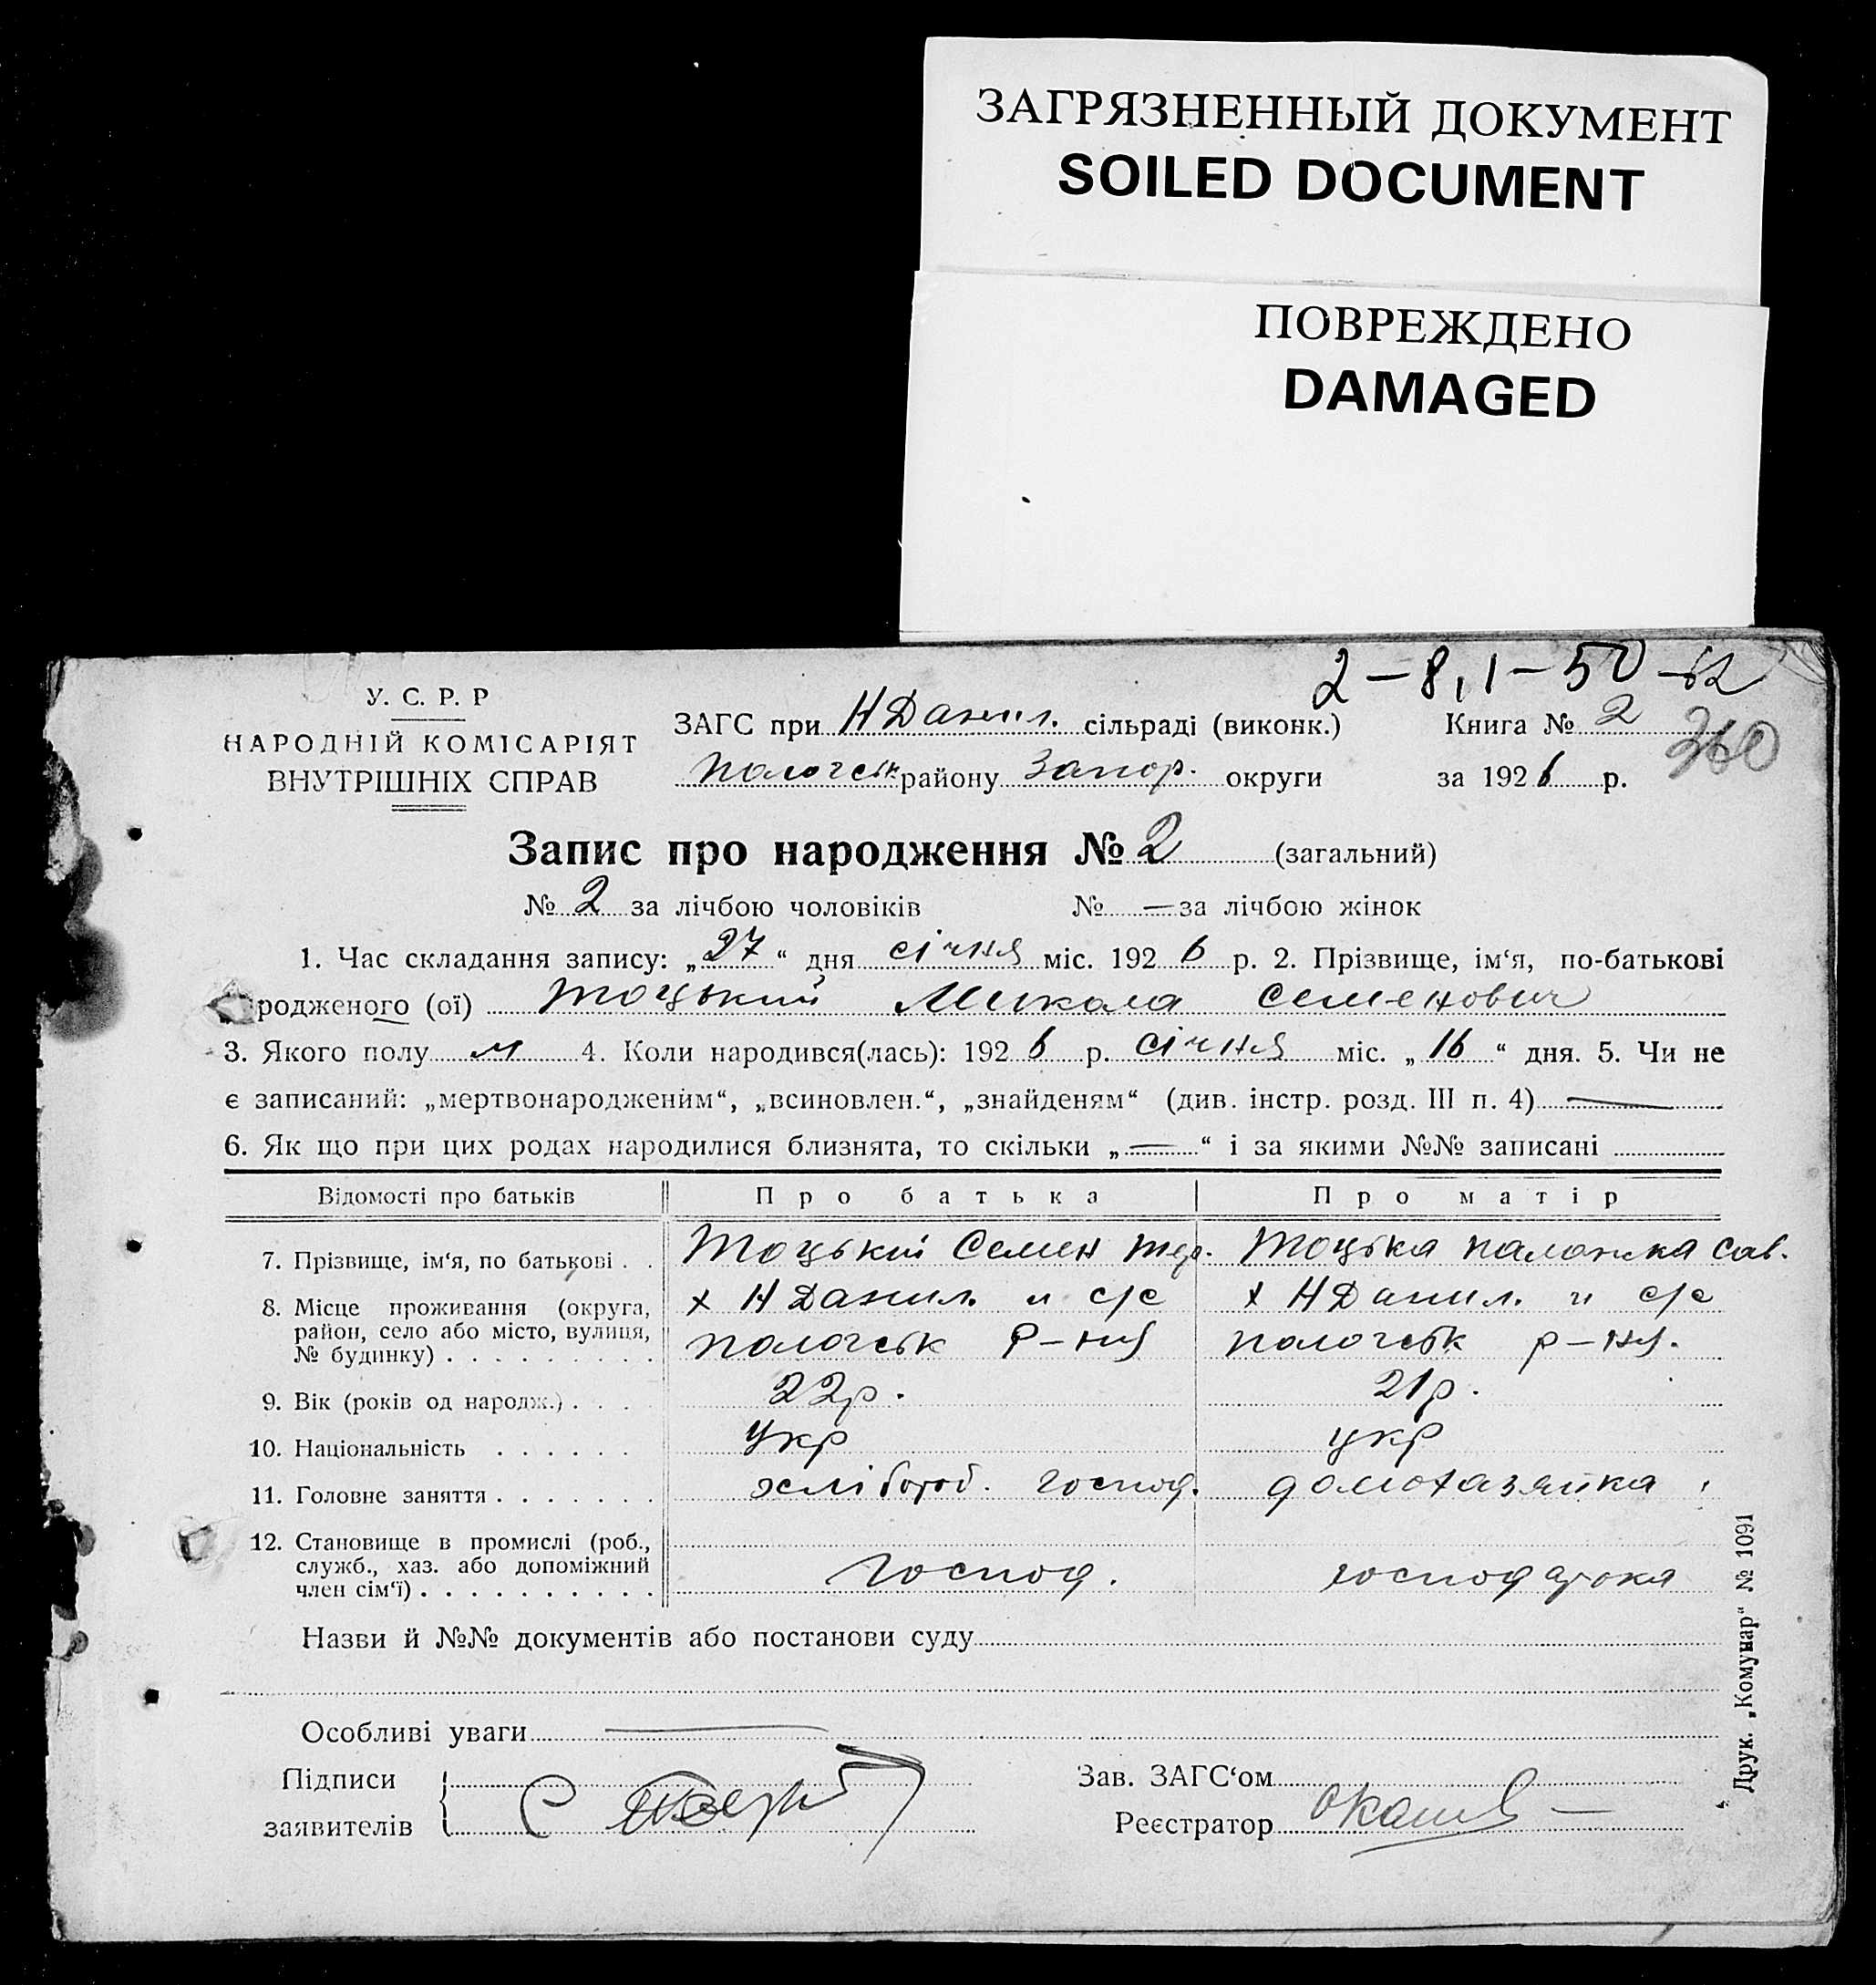 ЗАГРЯЗНЕННЫЙ ДОКУМЕНТ
SOILED DOCUMENT
ПОВРЕЖДЕНО
DAMAGED
2 – 8, 1 – 50 – 52
У. С. Р. Р
НАРОДНІЙ КОМІСАРІЯТ
ВНУТРІШНІХ СПРАВ
ЗАГС при Н Данил. сільраді (виконк.) Книга № 2
360
Пологськ району Запор. округи за 1926 р.
Запис про народження № 2 (загальний)
№ 2 за лічбою чоловіків № — за лічбою жінок
1. Час складання запису: „27“ дня січня міс. 1926 р. 2. Прізвище, ім‘я, по-батькові
родженого (ої) Тоцький Микола Семенович
3. Якого полу м 4. Коли народився(лась): 1926 р. січня міс. „16“ дня. 5. Чи не
є записаний: „мертвонародженим“, „всиновлен.“, „знайденям“ (див. інстр. розд. III п. 4) —
6. Як що при цих родах народилися близнята, то скільки „—“ і за якими №№ записані
Відомості про батьків Про батька Про матір
7. Прізвище, ім‘я, по батькові . . Тоцький Семен Тоцька Паложка Сав.
8. Місце проживання (округа, район, село або місто, вулиця, № будинку) . . . . . . . . .
х Н Данил. с/с х Н Данил. с/с
Пологськ р–ня Пологськ р–ня.
9. Вік (років од народж.) . . . . 22р. 21р.
10. Національність . . . . . . Укр укр
11. Головне заняття . . . . . . . хлібороб. господ. домохазяйка
12. Становище в промислі (роб., служб., хаз. або допоміжний член сім‘ї) . . . . . . . . . . господ. господарока
Назви й №№ документів або постанови суду
Особливі уваги —
Підписи
заявителів
Зав. ЗАГС‘ом
Реєстратор
Друк. „Комунар“ № 1091